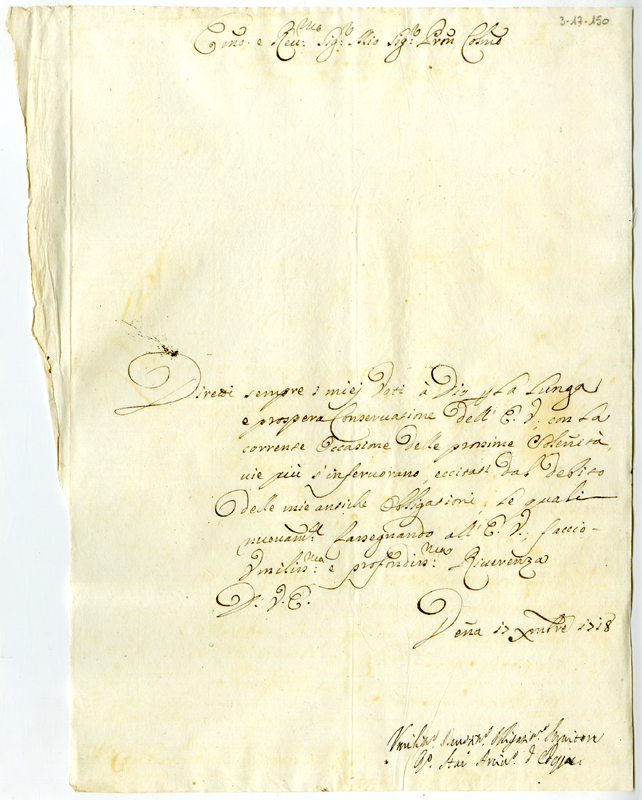 3-17-150
Emo. e Reu:mo Sigr. Mio Sigr. Pron Colmo
Diretti sempre i miej Voti à Dio p la lunga
e prospera Conseruatione dell' E. V., con la
corrente Occasione delle prossime Solennità,
uie più s'inferuorano, eccitati dal debito
delle mie antiche Obligationi, le quali
nuouamte. rassegnando all' E. V., faccio
Vmiliss:ma e profondiss:ma Riuerenza
D. V. E.
17 Xmbre 1718
Vmilis.o Obligatis.o Seruitore